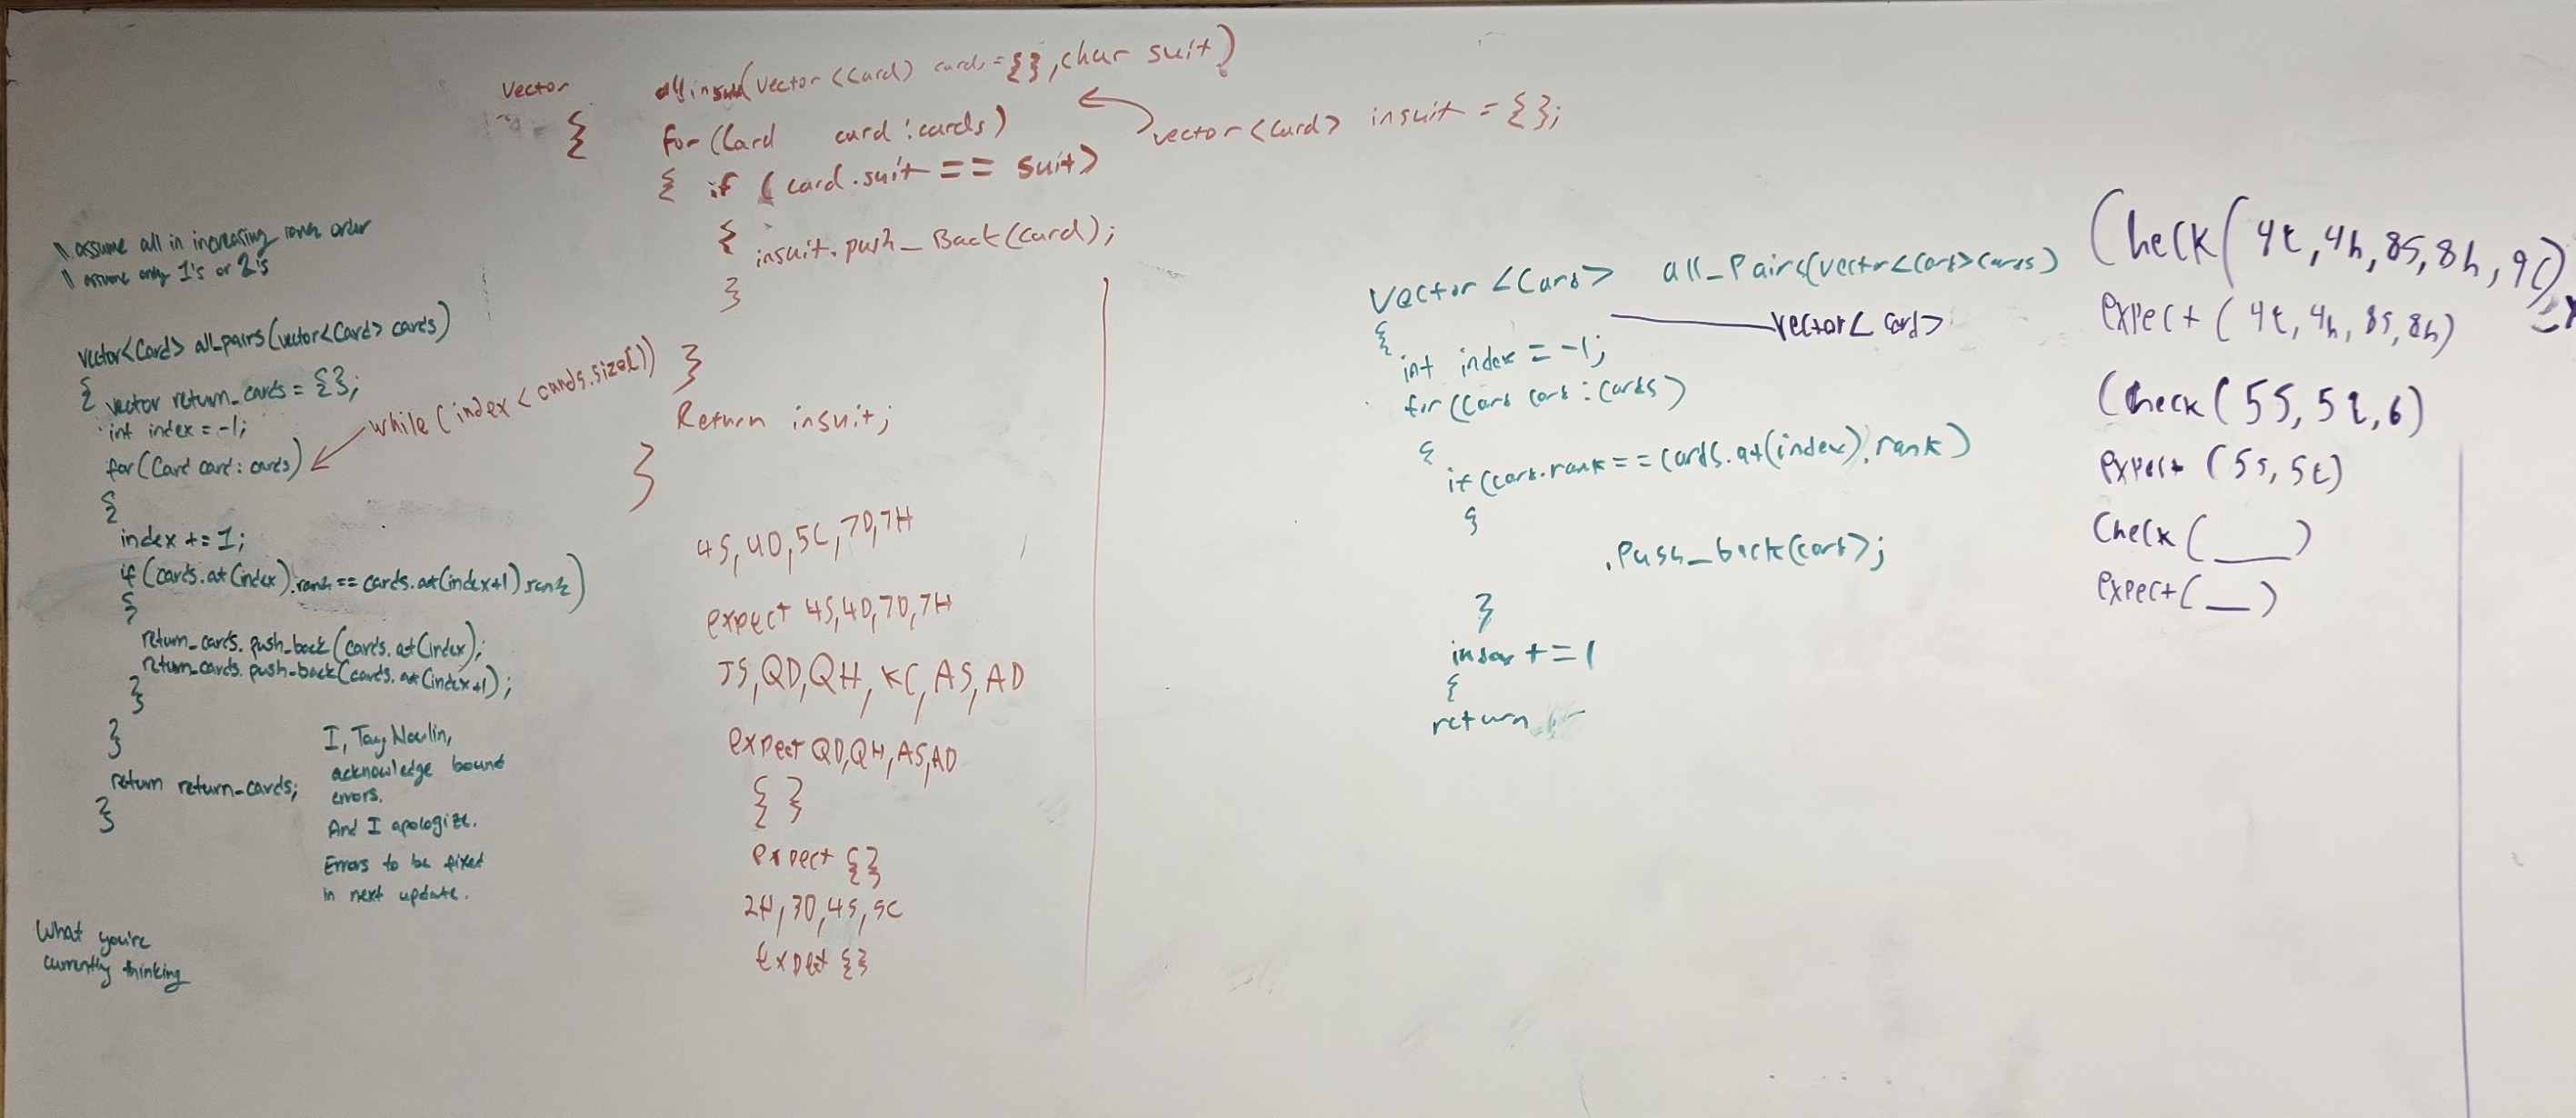 Vector all insuit(vector<Card> cards={},char suit)
{
for(Card card:cards)
vector<Card> insuit = {};
{ if (card.suit == suit)
{
insuit.push_Back(card);
}
}
Return insuit;
}
4S,4D,5C,7D,7H
expect 4S,4D,7D,7H
JS,QD,QH,KC,AS,AD
expect QD,QH,AS,AD
{ }
expect {}
2H,3D,4S,5C
Expect {}
\\ assume all in increasing rank order
\\ assume only 1's or 2's
vector<Card> all_pairs(vector<Card> cards)
{
vector return_cards = {};
int index = -1;
for(Card card: cards)
while(index < cards.size())
{
index += 1;
if (cards.at(index).rank == cards.at(index+1).rank)
{
return_cards.push_back(cards.at(index);
return_cards.push_back(cards.at(index+1);
}
}
return return_cards;
}
I, Tay Nowlin,
acknowledge bound
errors.
And I apologize.
Errors to be fixed
in next update.
What you're
currently thinking
Vector <Card> all_Pairs(vector<Card>cards)
{
vector< Card>
int index = -1;
for (Card card : cards)
{
if (card.rank == cards.at(index).rank)
{
.Push_back(card);
}
index += 1
{
return
Check(4c,4h,8s,8h,9c)
expect (4c,4h,8s,8h)
Check (5s,5c,6)
expect (5s,5c)
Check (___)
expect(__)